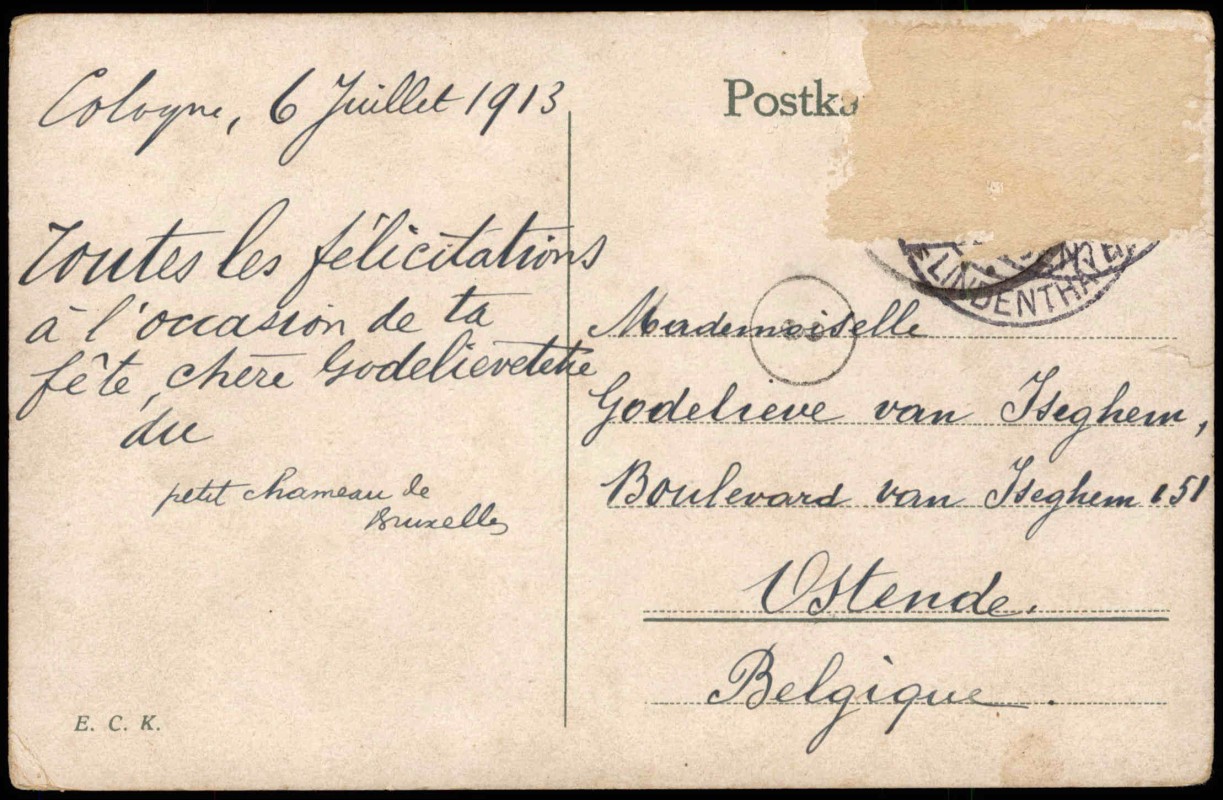 Cologne, 6 Juillet 1913
Toutes les félicitations
à l'occasion de ta
fête, chère Godelievetetje
du
petit chameau de
Bruxelles
E. C. K.
Postka
LINDENTHA
Mademoiselle
Godelieve van Iseghem,
Boulevard van Iseghem 151
Ostende.
Belgique.